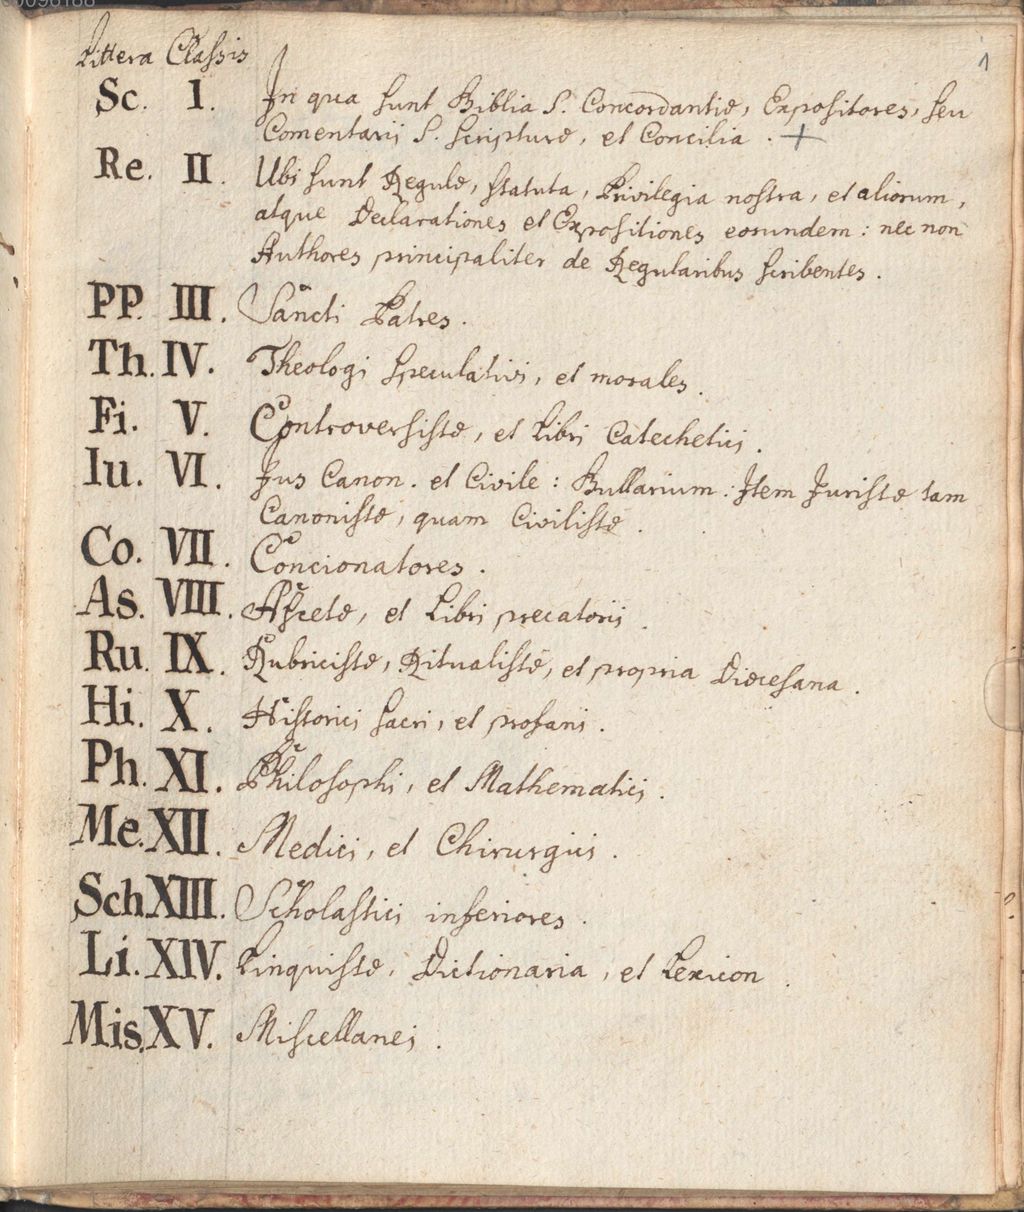 1
Littera Classis
Sc. I. In qua sunt Biblia S. Concordantiæ, Expositores, seu
Comentarij S. Scripturæ, et Concilia. +
Re. II. Ubi sunt Regulæ, statuta, Privilegia nostra, et aliorum,
atque Declarationes et Expositiones eorundem: nec non
Authores principaliter de Regularibus scribentes.
PP. III. Sancti Patres.
Th. IV. Theologi speculativi, et morales.
Fi. V. Controversistæ, et Libri Catechetici.
Iu. VI. Jus Canon. et Civile: Bullarium: Item Juristæ tam
Canonistæ, quam Civilistæ.
Co. VII. Concionatores.
As. VIII. Ascetæ, et Libri precatorij.
Ru. IX. Rubricistæ, Ritualistæ, et propria Diœcesana.
Hi. X. Historici sacri, et profani.
Ph. XI. Philosophi, et Mathematici.
Me. XII. Medici, et Chirurgici.
Sch XIII. Scholastici inferiores.
Li. XIV. Linquistæ, Dictionaria, et Lexicon.
Mis. XV. Miscellanei.